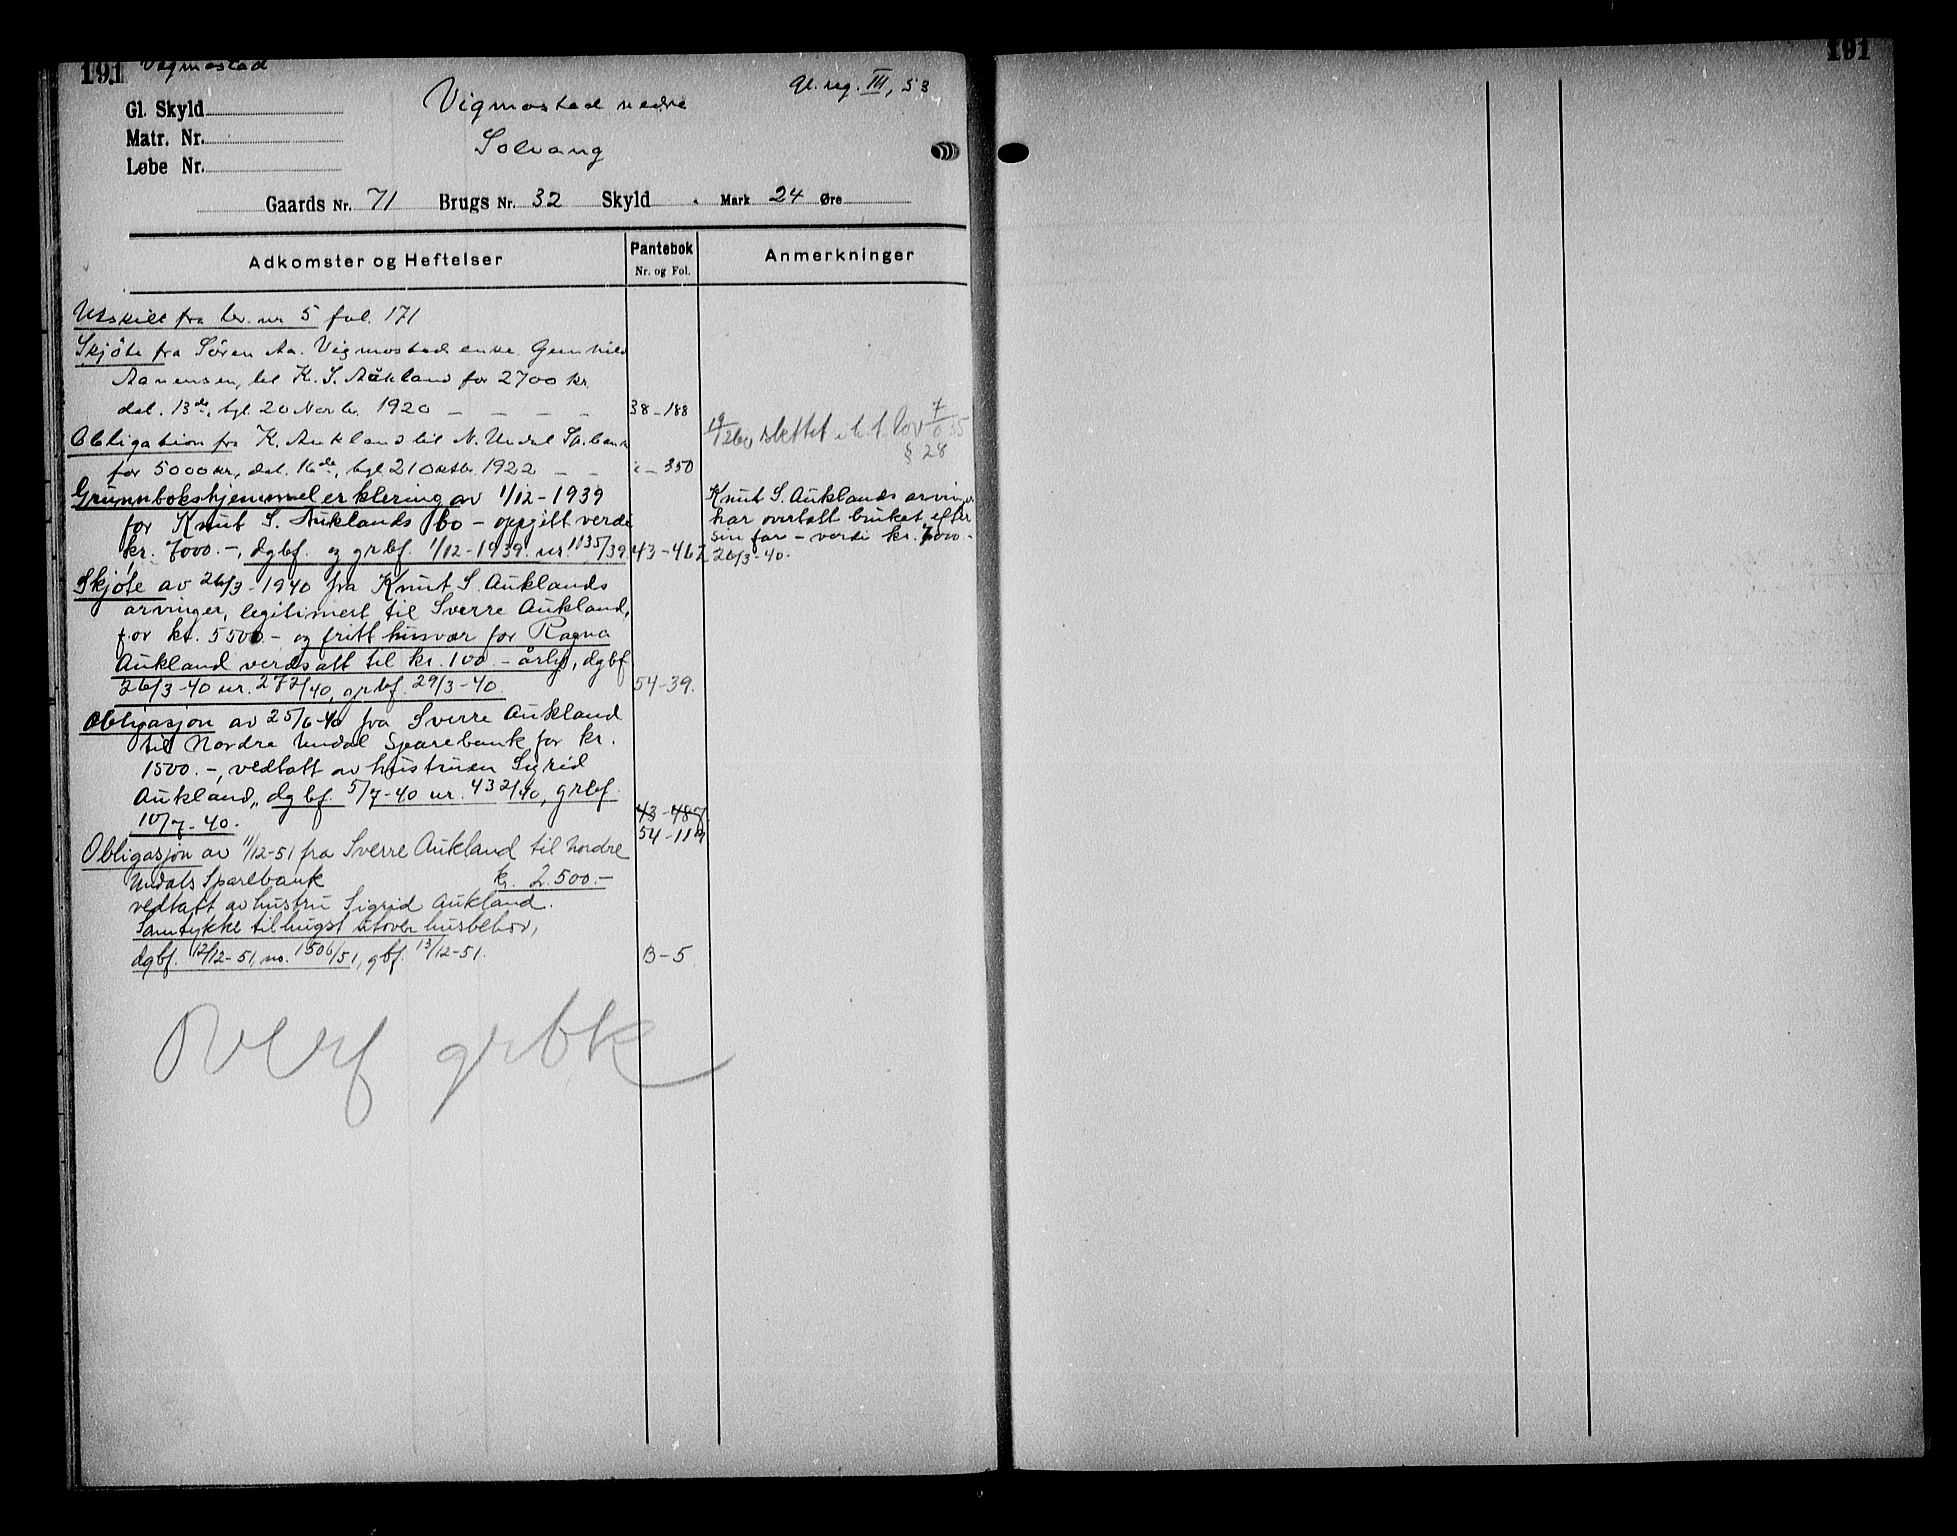 191 Vigmostad
191
Gl. reg. III, 53
Gl. Skyld
Vigmostad nedre
Matr. Nr.
Solvang
Løbe Nr.
Gaards Nr. 71 Brugs Nr. 32 Skyld Mark 24 Øre
Adkomster og Heftelser
Pantebok
Nr. og Fol.
Anmerkninger
Utskilt fra br. nr 5 fol. 171
Skjöte fra Sören Aa. Vigmostads enke Gunhild
Aanensen, til K. S. Aukland for 2700 kr.
dat. 13de, tgl. 20 Novbr. 1920 – – – – 38–188
Obligation fra K. Aukland til N. Undal Sp.bank
for 5000 kr., dat. 16de, tgl. 21 oktbr. 1922 – – 350
19/1260 slettet i h. t. lov 7/6 35
§ 28
Grunnbokshjemmelerklering av 1/12-1939
for Knut S. Auklands bo – oppgitt verdi
kr. 7000.–, dgbf. og grbf. 1/12-1939. nr 1135/39. 43-467
Knut S. Auklands arvinger
har overtatt bruket efter
sin far – verdi kr. 7000.-
26/3-40.
Skjøte av 26/3-1940 fra Knut S. Auklands
arvinger, legitimert til Sverre Aukland,
for kr. 5500.- og fritt husvær for Ragna
Aukland verdsatt til kr. 100.- årlig, dgbf
26/3-40 nr. 272/40, grbf. 29/3-40. 54-39.
Obligasjon av 25/6-40 fra Sverre Aukland
til Nordre Undal Sparebank for kr.
1500.-, vedtatt av hustruen Sigrid
Aukland, dgbf. 5/7-40 nr. 432/40, grbf.
10/7-40. 43-487
54-119
Obligasjon av 11/12-51 fra Sverre Aukland til Nordre
Undals Sparebank kr. 2.500.-
vedtatt av hustru Sigrid Aukland.
Samtykke til hugst utover husbehov,
dgbf. 12/12-51, no. 1506/51, gbf. 13/12-51. B-5
Overf grbk